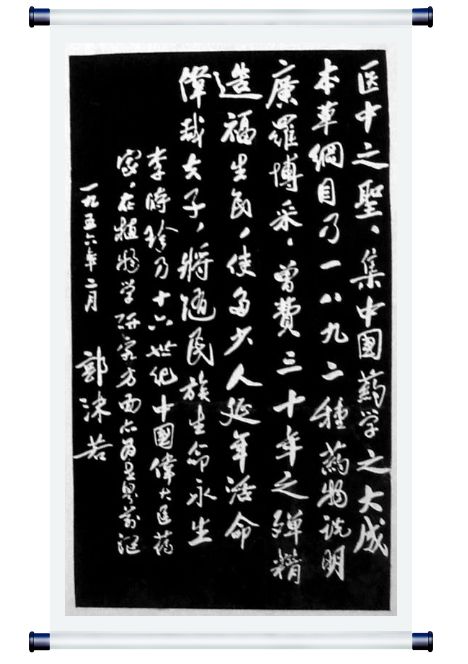 医中之聖、集中國葯学之大成
本草綱目乃一八九二種葯物说明
廣羅博采，曾費三十年之殫精
造福生民，使多少人延年活命
偉哉夫子，將随民族生命永生
李時珍乃十六世纪中國偉大医葯
家，在植物学研究方面亦为世界前驱
一九五六年二月 郭沫若